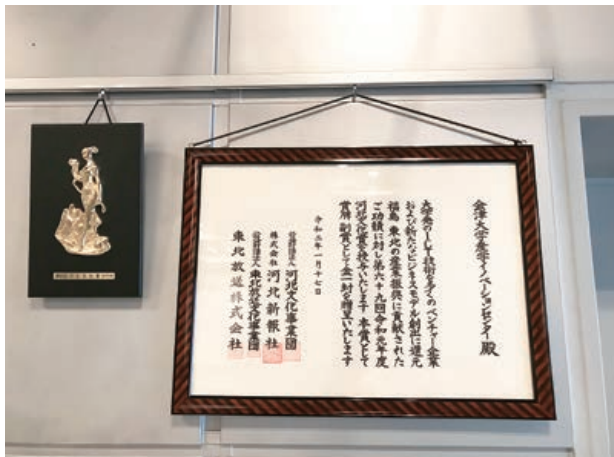 会津大学産学イノベーションセンター 殿
大学発のICT技術を多くのベンチャー企業
および新たなビジネスモデル創出に還元
福島 東北の産業振興に貢献された
ご功績に対し第六十九回令和元年度
河北文化賞を授与いたします 本賞として
賞牌 副賞として金一封を贈呈いたします
令和二年一月十七日
公益財団法人 河北文化事業団
株式会社 河北新報社
公益財団法人 東北放送文化事業団
東北放送株式会社